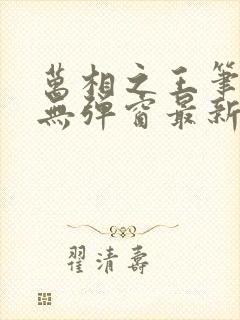 萬相之王筆
無彈窗最新
翟清壽